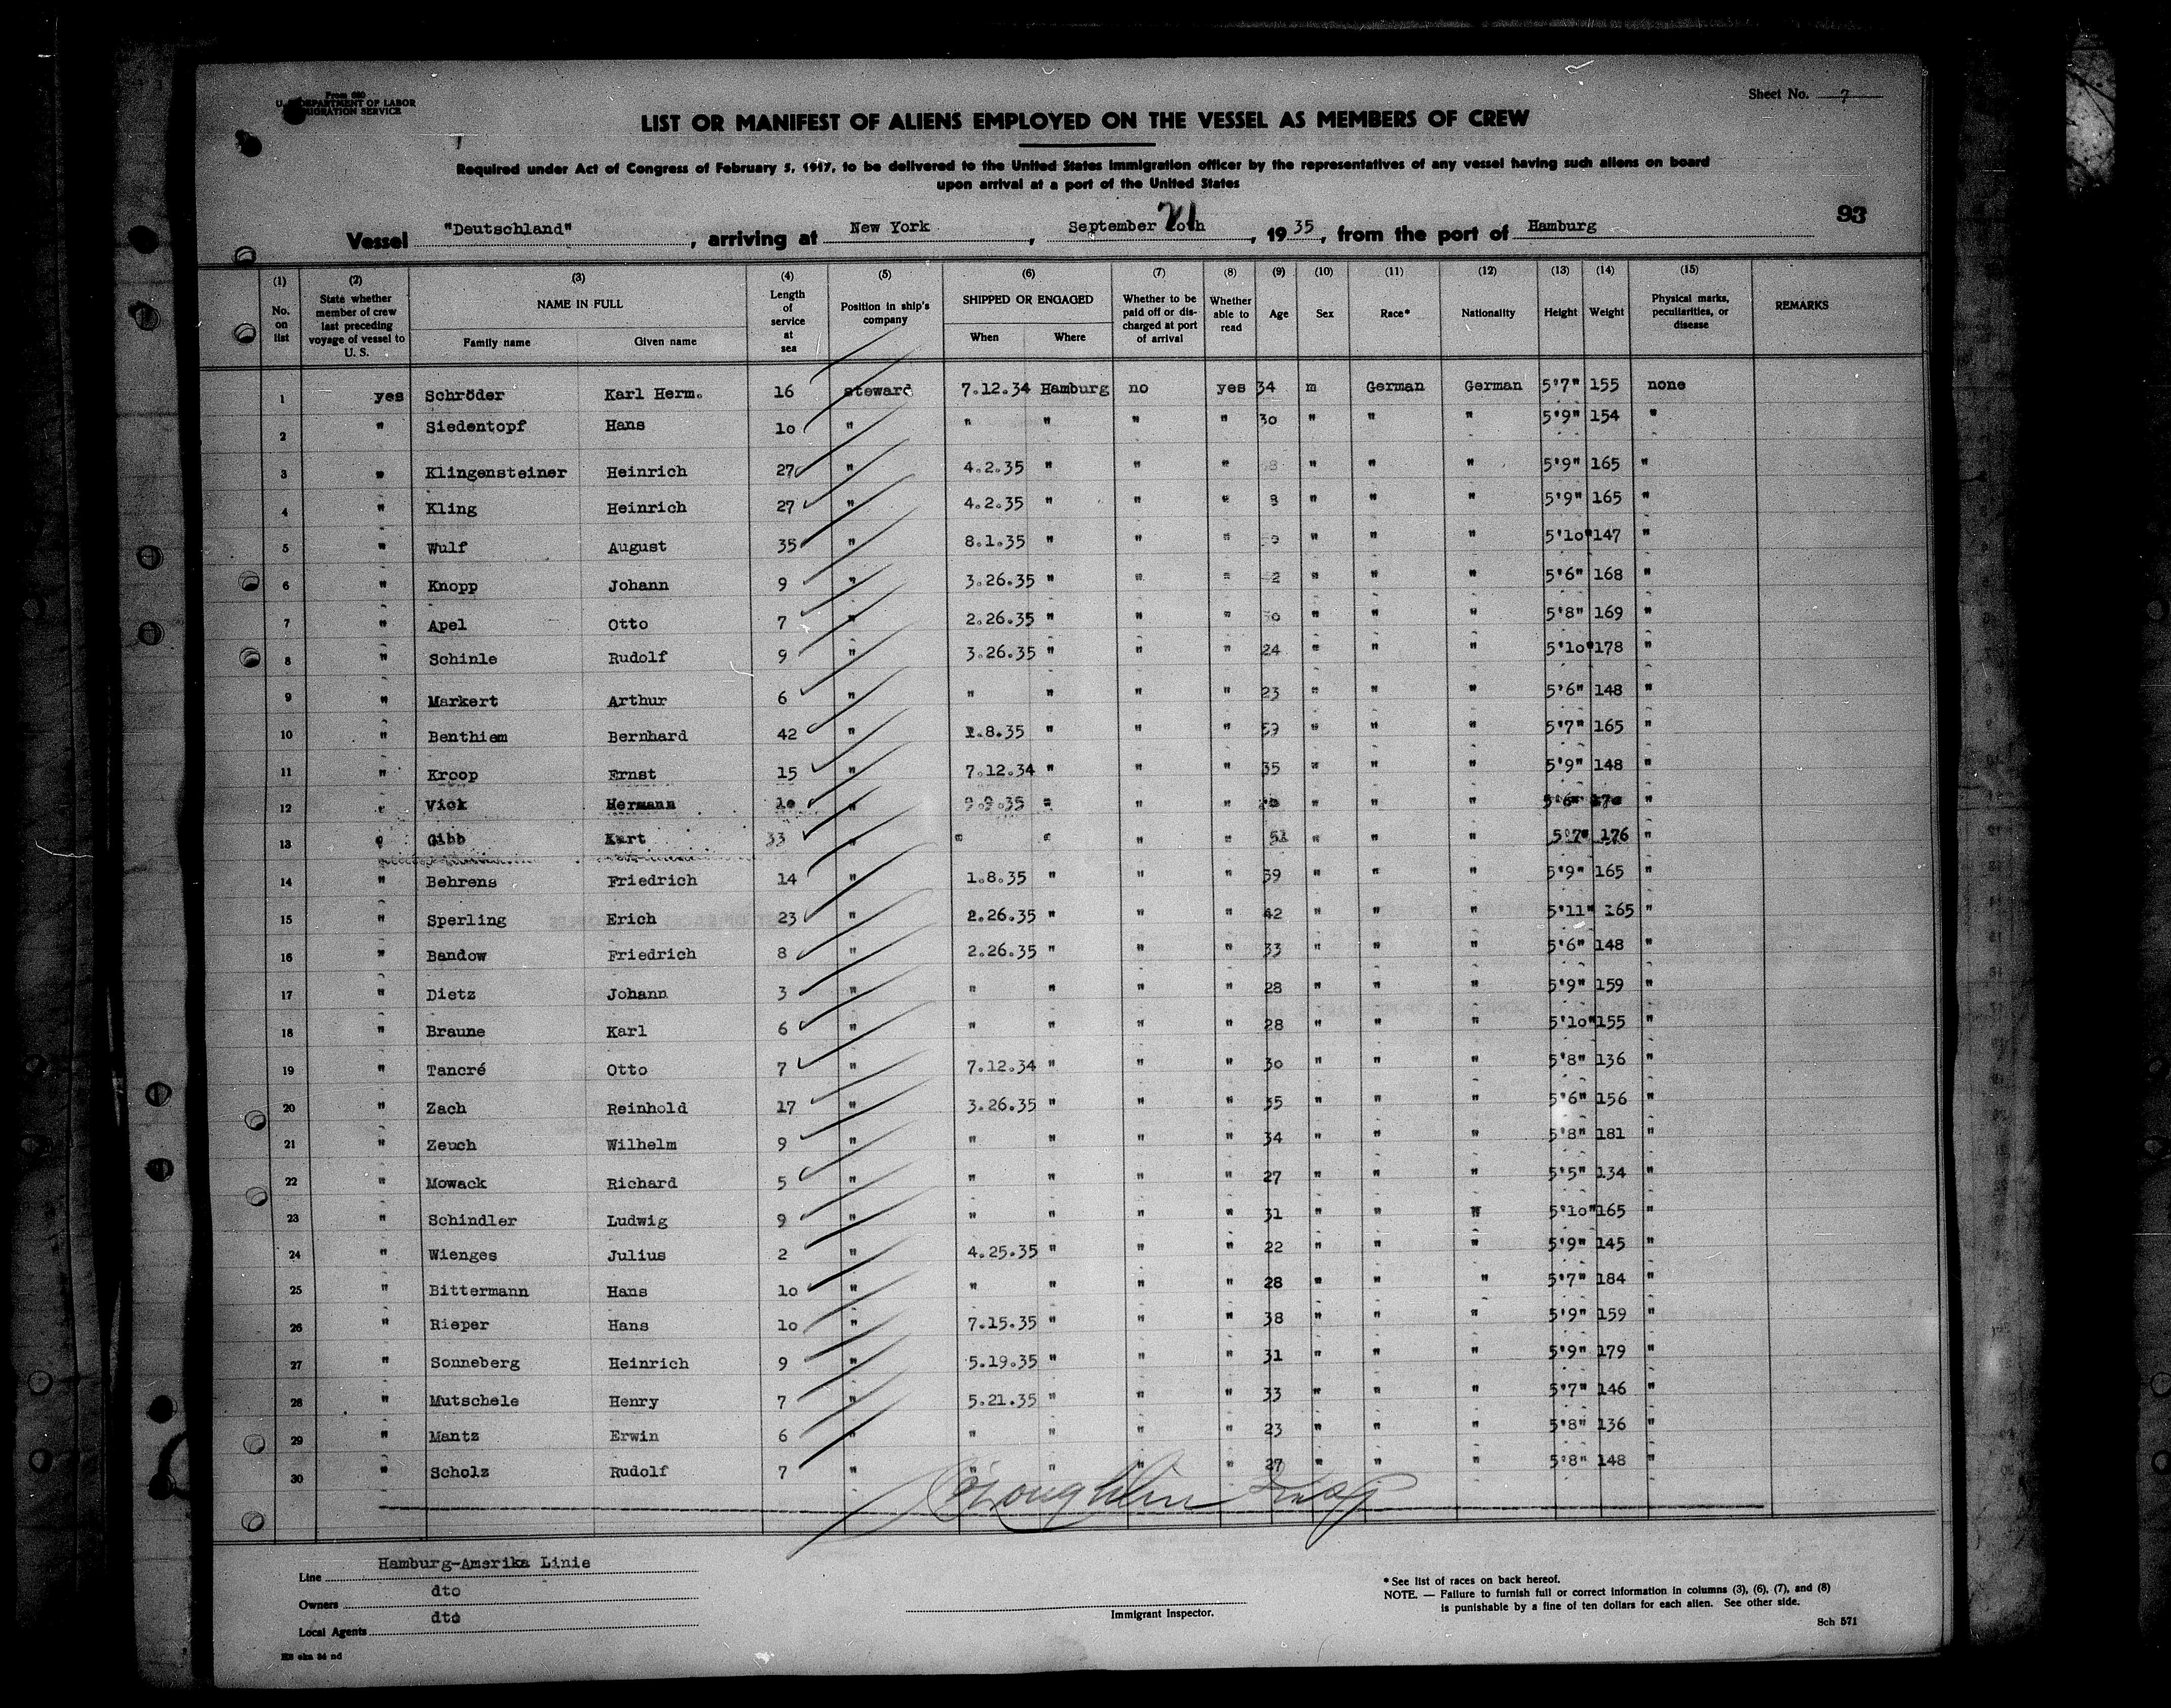 Sheet No. 7
From 680
U. S. DEPARTMENT OF LABOR
IMMIGRATION SERVICE
LIST OR MANIFEST OF ALIENS EMPLOYED ON THE VESSEL AS MEMBERS OF CREW
Required under Act of Congress of February 5, 1917, to be delivered to the United States immigration officer by the representatives of any vessel having such aliens on board
upon arrival at a port of the United States
93
Vessel "Deutschland", arriving at New York, September 21, 1935, from the port of Hamburg
(1) (2) (3) (4) (5) (6) (7) (8) (9) (10) (11) (12) (13) (14) (15)
No. on list State whether member of crew last preceding voyage of vessel to U. S. NAME IN FULL Family name Given name Length of service at sea Position in ship's company SHIPPED OR ENGAGED When Where Whether to be paid off or discharged at port of arrival Whether able to read Age Sex Race* Nationality Height Weight Physical marks, peculiarities, or disease REMARKS
1 yes Schröder Karl Herm. 16 steward 7.12.34 Hamburg no yes 34 m German German 5'7" 155 none
2 " Siedentopf Hans 1o " " " " " 3o " " " 5'9" 154 "
3 " Klingensteiner Heinrich 27 " 4.2.35 " " " " " " 5'9" 165 "
4 " Kling Heinrich 27 " 4.2.35 " " " " " " 5'9" 165 "
5 " Wulf August 35 " 8.1.35 " " " " " " 5'1o" 147 "
6 " Knopp Johann 9 " 3.26.35 " " " " " " 5'6" 168 "
7 " Apel Otto 7 " 2.26.35 " " " " " " 5'8" 169 "
8 " Schinle Rudolf 9 " 3.26.35 " " " 24 " " " 5'1o" 178 "
9 " Markert Arthur 6 " " " " " 23 " " " 5'6" 148 "
10 " Benthiem Bernhard 42 " 1.8.35 " " " 59 " " " 5'7" 165 "
11 " Kroop Ernst 15 " 7.12.34 " " " 35 " " " 5'9" 148 "
12 " Vick Hermann 1o " 9.9.35 " " " " " " 5'6" "
13 " Gibb Kurt 33 " " " " " 51 " " " 5'7" 176 "
14 " Behrens Friedrich 14 " 1.8.35 " " " 39 " " " 5'9" 165 "
15 " Sperling Erich 23 " 2.26.35 " " " 42 " " " 5'11" 165 "
16 " Bandow Friedrich 8 " 2.26.35 " " " 33 " " " 5'6" 148 "
17 " Dietz Johann 3 " " " " " 28 " " " 5'9" 159 "
18 " Braune Karl 6 " " " " " 28 " " " 5'1o" 155 "
19 " Tancré Otto 7 " 7.12.34 " " " 3o " " " 5'8" 136 "
20 " Zach Reinhold 17 " 3.26.35 " " " 35 " " " 5'6" 156 "
21 " Zeuch Wilhelm 9 " " " " " 34 " " " 5'8" 181 "
22 " Mowack Richard 5 " " " " " 27 " " " 5'5" 134 "
23 " Schindler Ludwig 9 " " " " " 31 " " " 5'1o" 165 "
24 " Wienges Julius 2 " 4.25.35 " " " 22 " " " 5'9" 145 "
25 " Bittermann Hans 1o " " " " " 28 " " " 5'7" 184 "
26 " Rieper Hans 1o " 7.15.35 " " " 38 " " " 5'9" 159 "
27 " Sonneberg Heinrich 9 " 5.19.35 " " " 31 " " " 5'9" 179 "
28 " Mutschele Henry 7 " 5.21.35 " " " 33 " " " 5'7" 146 "
29 " Mantz Erwin 6 " " " " " 23 " " " 5'8" 136 "
30 " Scholz Rudolf 7 " " " " " 27 " " " 5'8" 148 "
Line Hamburg-Amerika Linie
Owners dto
Local Agents dto
Immigrant Inspector.
* See list of races on back hereof.
NOTE. — Failure to furnish full or correct information in columns (3), (6), (7), and (8)
is punishable by a fine of ten dollars for each alien. See other side.
Sch 571